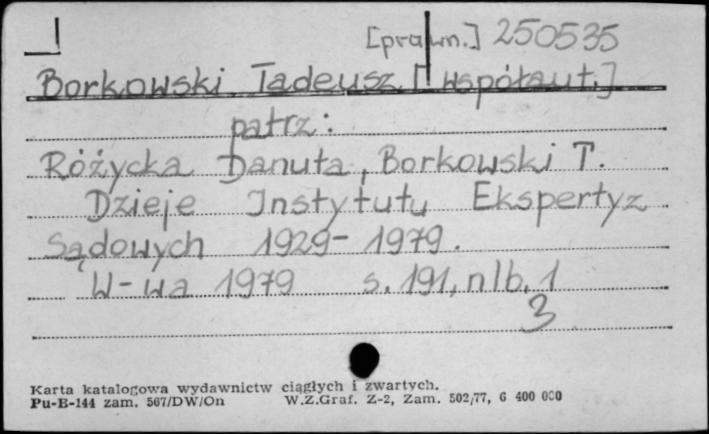 [prawn.] 250535
Borkowski Tadeusz [współaut.]
patrz:
Różycka Danuta, Borkowski T.
Dzieje Instytutu Ekspertyz
Sądowych 1929-1979.
W-wa 1979 s. 191, nlb. 1
3
Karta katalogowa wydawnictw ciągłych i zwartych.
Pu-E-144 zam. 567/DW/On W.Z.Graf. Z-2, Zam. 502/77, G 400 000